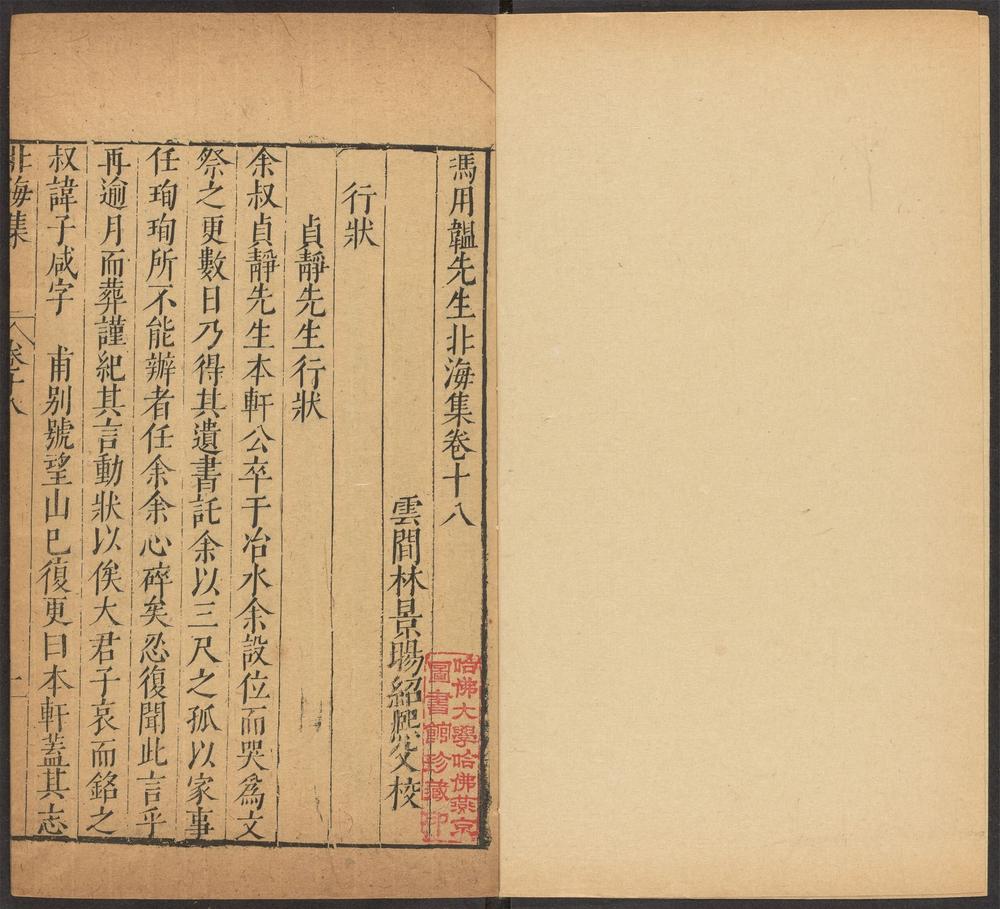 馮用韞先生北海集卷十八
雲間林景暘紹熙父校
行狀
貞靜先生行狀
余叔貞靜先生本軒公卒于冶水余設位而哭爲文
祭之更數日乃得其遺書託余以三尺之孤以家事
任珣珣所不能辦者任余余心碎矣忍復聞此言乎
再逾月而葬謹紀其言動狀以俟大君子哀而銘之
叔諱子咸字 甫別號望山已復更曰本軒蓋其志
北海集 卷十八 一
哈佛大學哈佛燕京
圖書館珍藏印